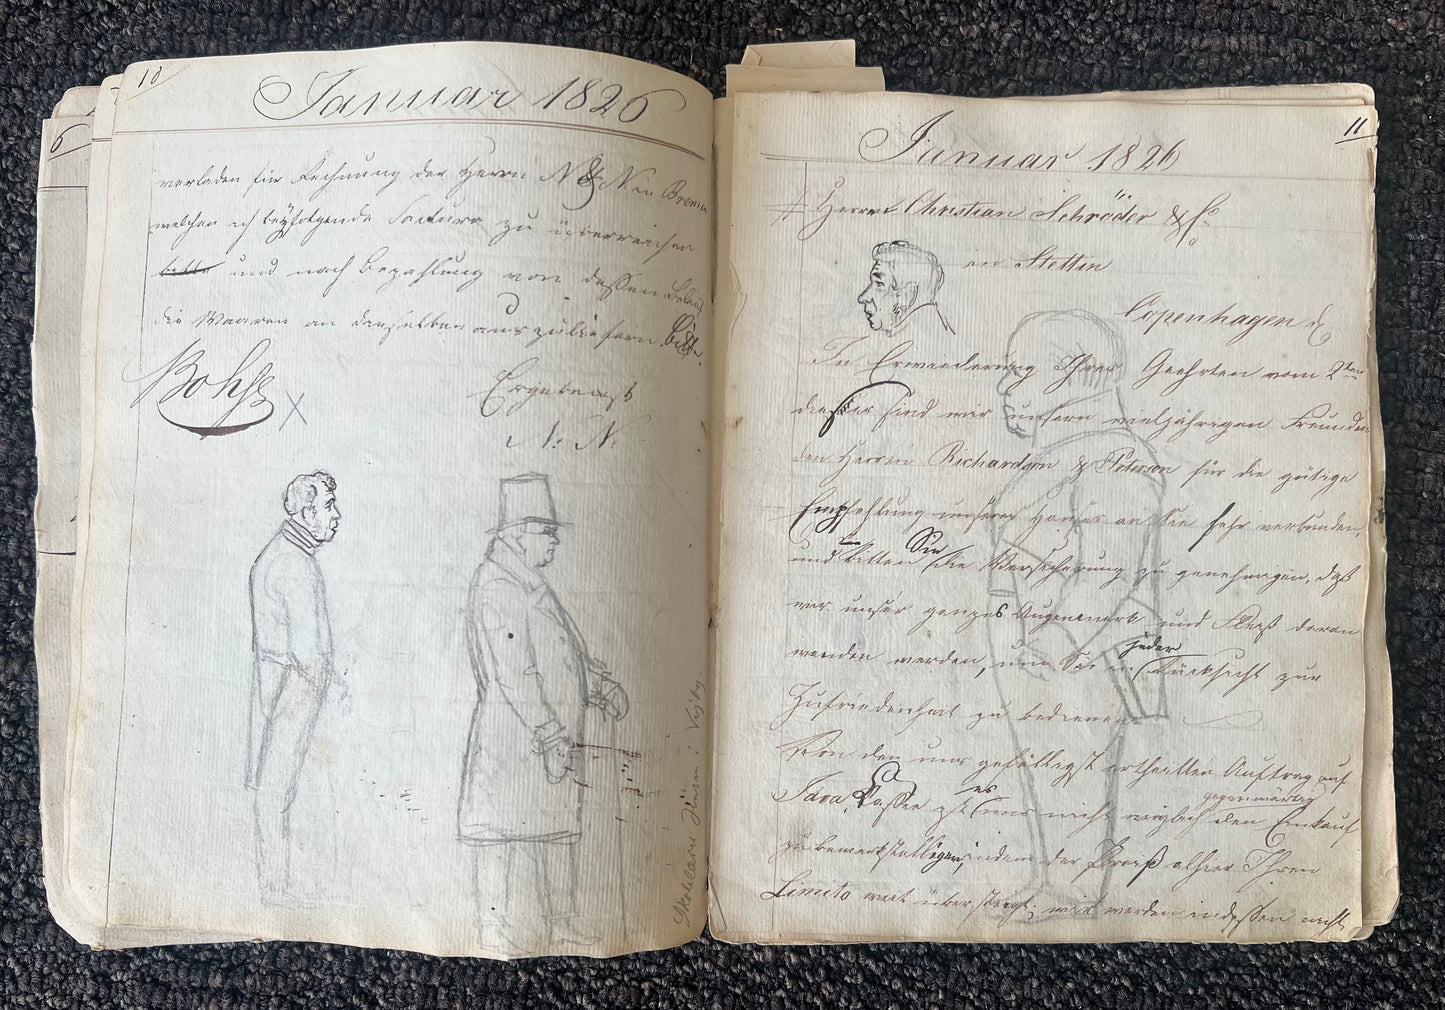 10
Januar 1826
verladen für Rechnung der Herrn N & N in Bremen
welchen ich beyfolgende Factura zu überreichen
bitte und nach Bezahlung von dessen
die Waaren an dieselben auszuliefern bitte.
Ergebenst
N. N.
X
Skolelärer Jönsen i Visby.
6
11
Januar 1826
Herren Christian Schröder & Co
in Stettin
Copenhagen d
In Erwiederung Ihres Geehrten vom 2ten
dieses sind wir unsern vieljährigen Freunden
den Herren Richardson & Peterson für die gütige
Empfehlung unseres Hauses an Sie sehr verbunden,
und bitten Sie die Versicherung zu genehmigen, daß
wir unser ganzes Augenmerk und Fleiß daran
wenden werden, um Sie in jeder Rücksicht zur
Zufriedenheit zu bedienen
Von den uns gefälligst ertheilten Auftrag auf
Java Caffee ist es uns nicht möglich den gegenwärtig Einkauf
zu bewerkstelligen, indem der Preiß alhier Ihren
Limito weit übersteigt; wir werden indessen nicht